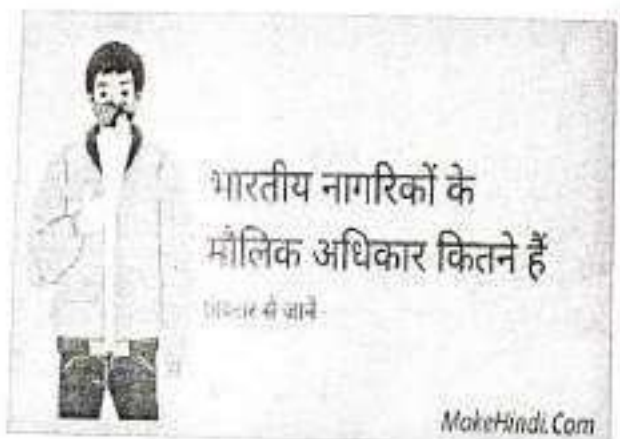 भारतीय नागरिकों के
मौलिक अधिकार कितने हैं
विस्तार से जानें
MakeHindi.Com